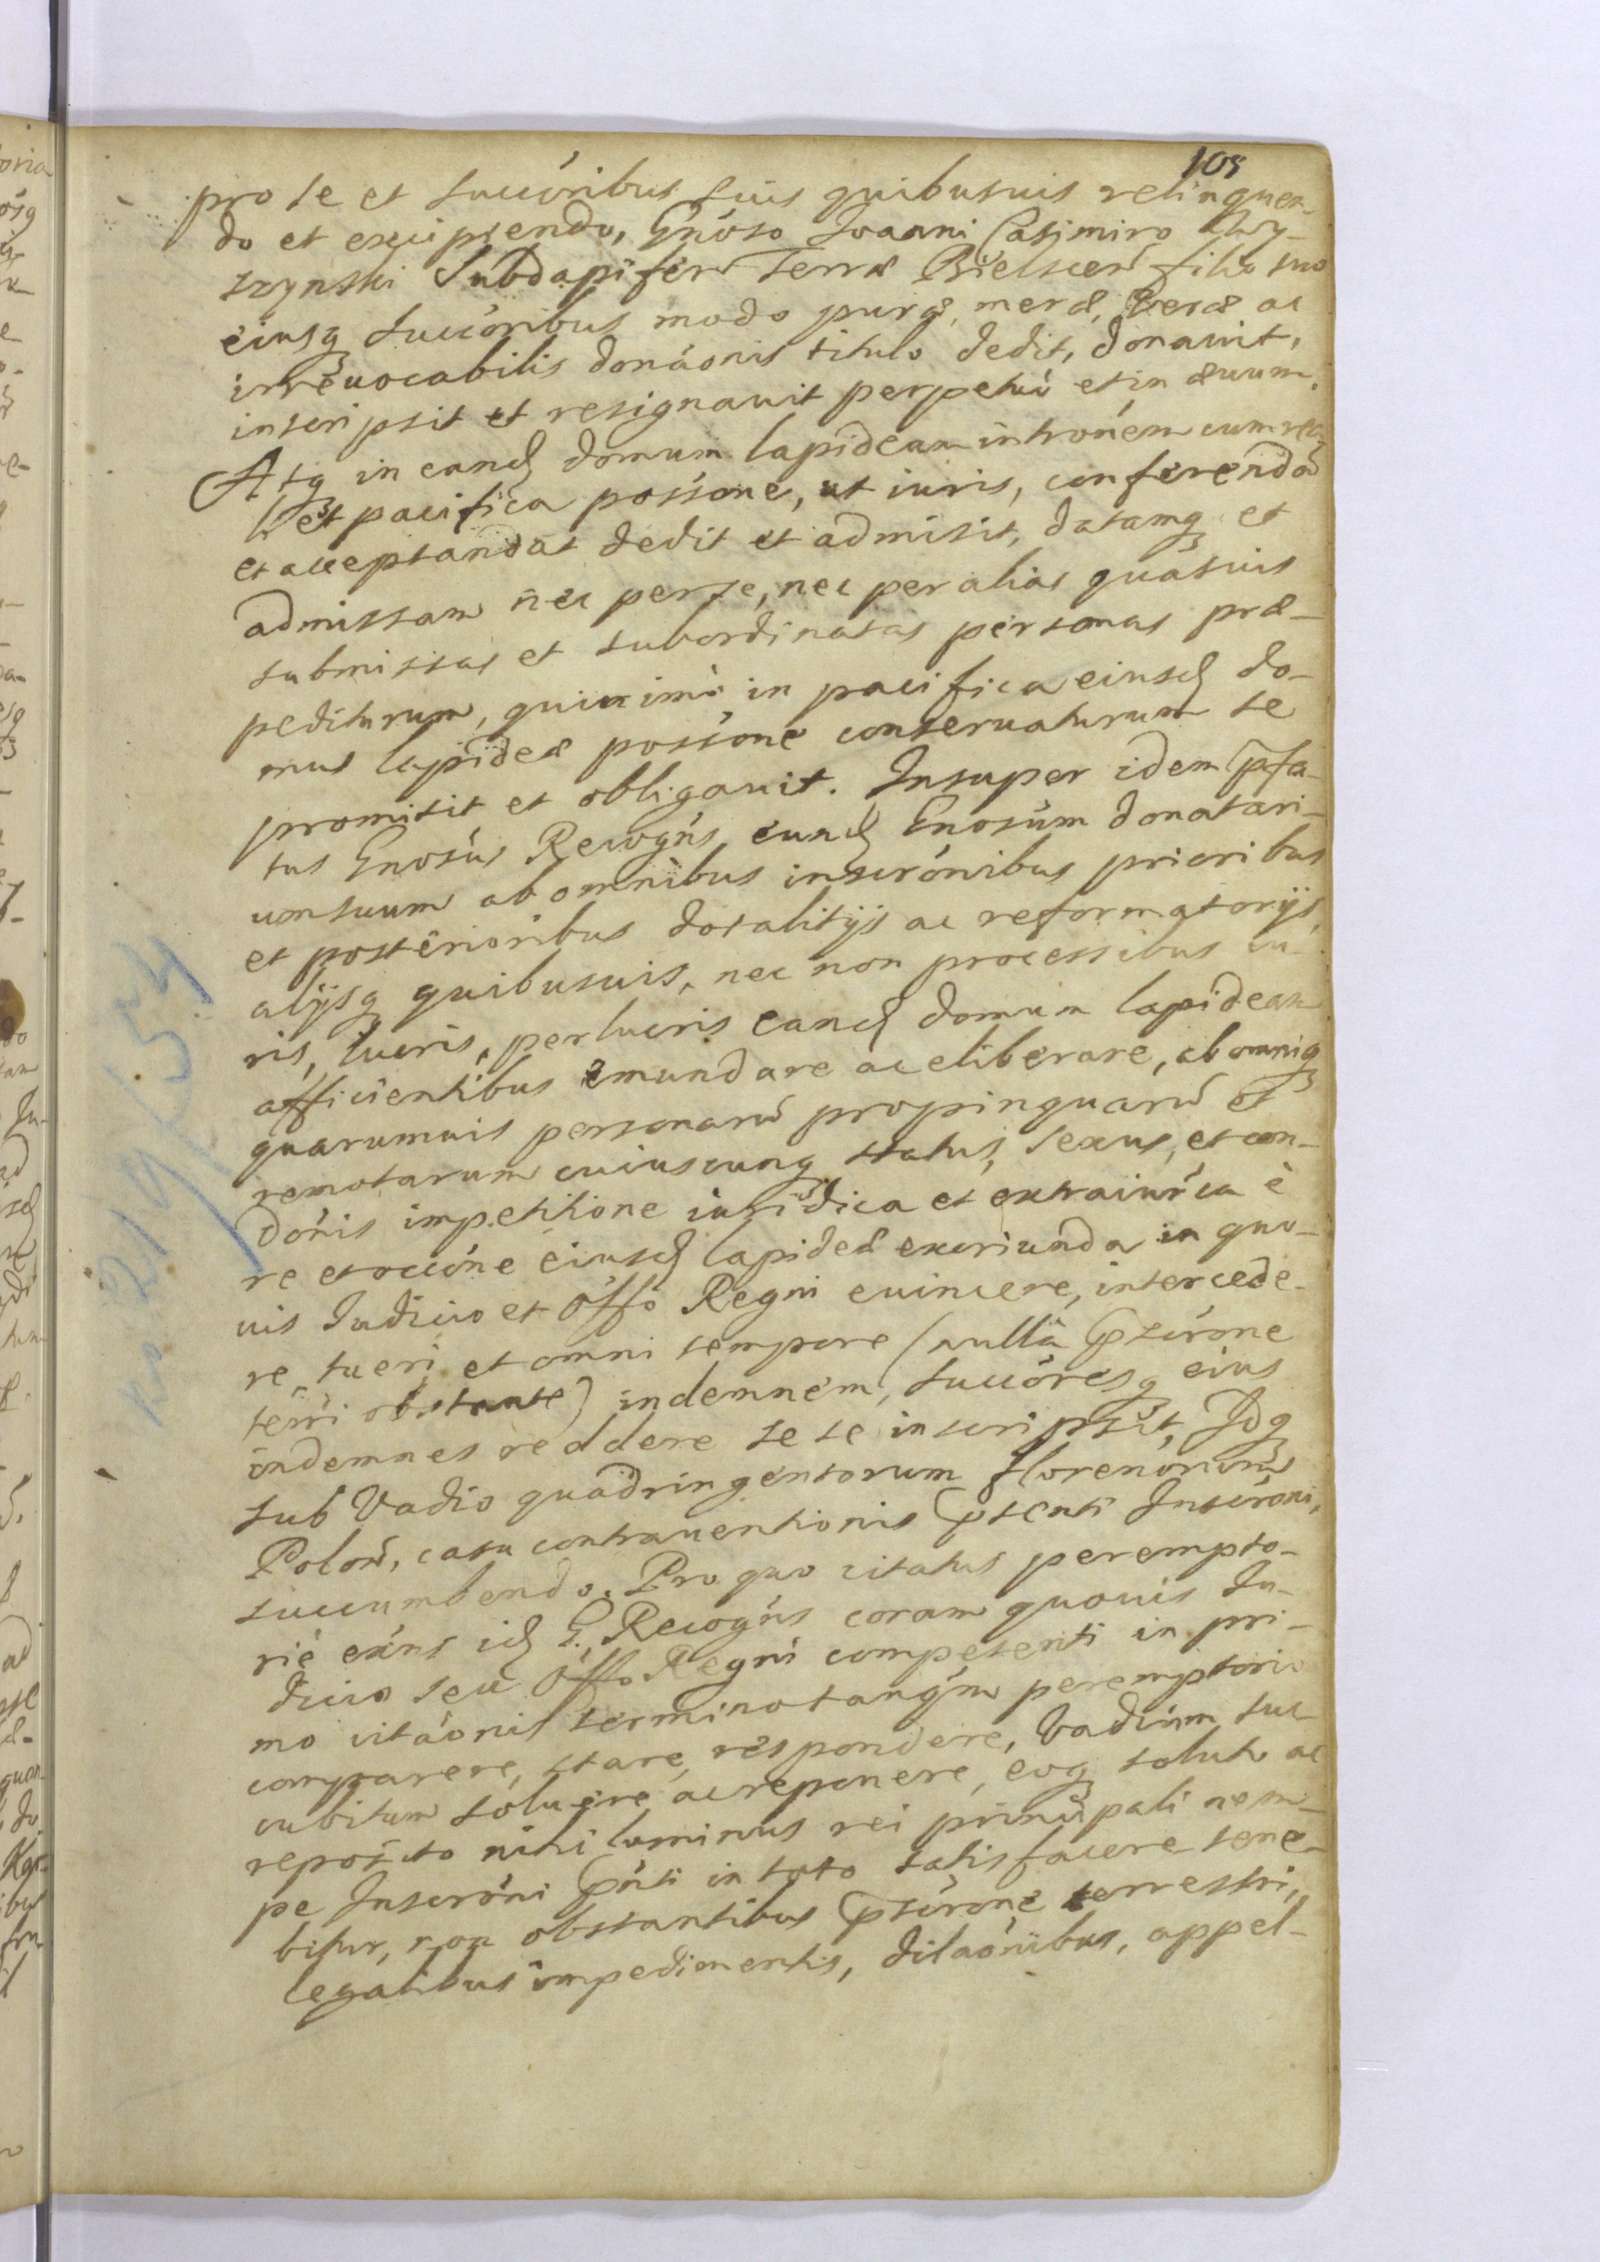 103
pro se et succóribus suis quibusuis relinquen-
do et excipiendo, Gnóso Joanni Casimiro
szynski Subdapifero Terræ Bielscen filio suo
eiusq succóribus modo puræ, meræ, veræ ac
irreuocabilis donáonis titulo dedit, donauit,
inscripsit et resignauit perpetuò et in æuum.
Atq in eand domum lapideam intronem cum rea-
li et pacifica possone, ut iuris, conferendã
et acceptandat dedit et admisit, datamq et
admissam nec per se, nec per alias quasuis
submissas et subordinatas personas præ-
pediturum, quinimò in pacifica eiusd do-
mus lapideæ possone conseruaturum se
promisit et obligauit. Insuper idem pfa-
tus Gnosùs Recogńs eund Gnosum donatari-
um suum ab omnibus inscrónibus prioribus
et posterioribus dotalitijs ac reformatorijs
alijsq quibusuis, nec non processibus iu-
ris, lucris, perlucris eand domum lapideam
afficientibus emundare ac eliberare, ab omniq
quarumuis personarũ propinquarũ et
remotarum cuiuscunq status, sexus, et con-
dónis impetitione iuridica et extraiurca è
re et occóne eiusd lapideæ exoriunda in quo-
uis Judicio et Offo Regni euincere, intercede-
re tueri et omni tempore (nullà pscróne
terri obstante) indemnem, succóresq eius
indemnes reddere se se inscripsit, Idq
sub Vadio quadringentorum florenorum
Polon, casu contrauentionis psenti Inscróni,
succumbendo. Pro quo citatus perempto-
riè exńs id G. Recogńs coram quouis Ju-
dicio seu Offo Regni competenti in pri-
mo citáonis termino tanqm peremptorio
comparere, stare, respondere, Vadium suc-
cubitum soluere ac reponere, eoq soluto ac
reposito nihilominus rei principali nem-
pe Inscróni pnti in toto satisfacere tene-
bitur, non obstantibus pscróne terrestri,
legalibus impedimentis, diláonibus, appel-